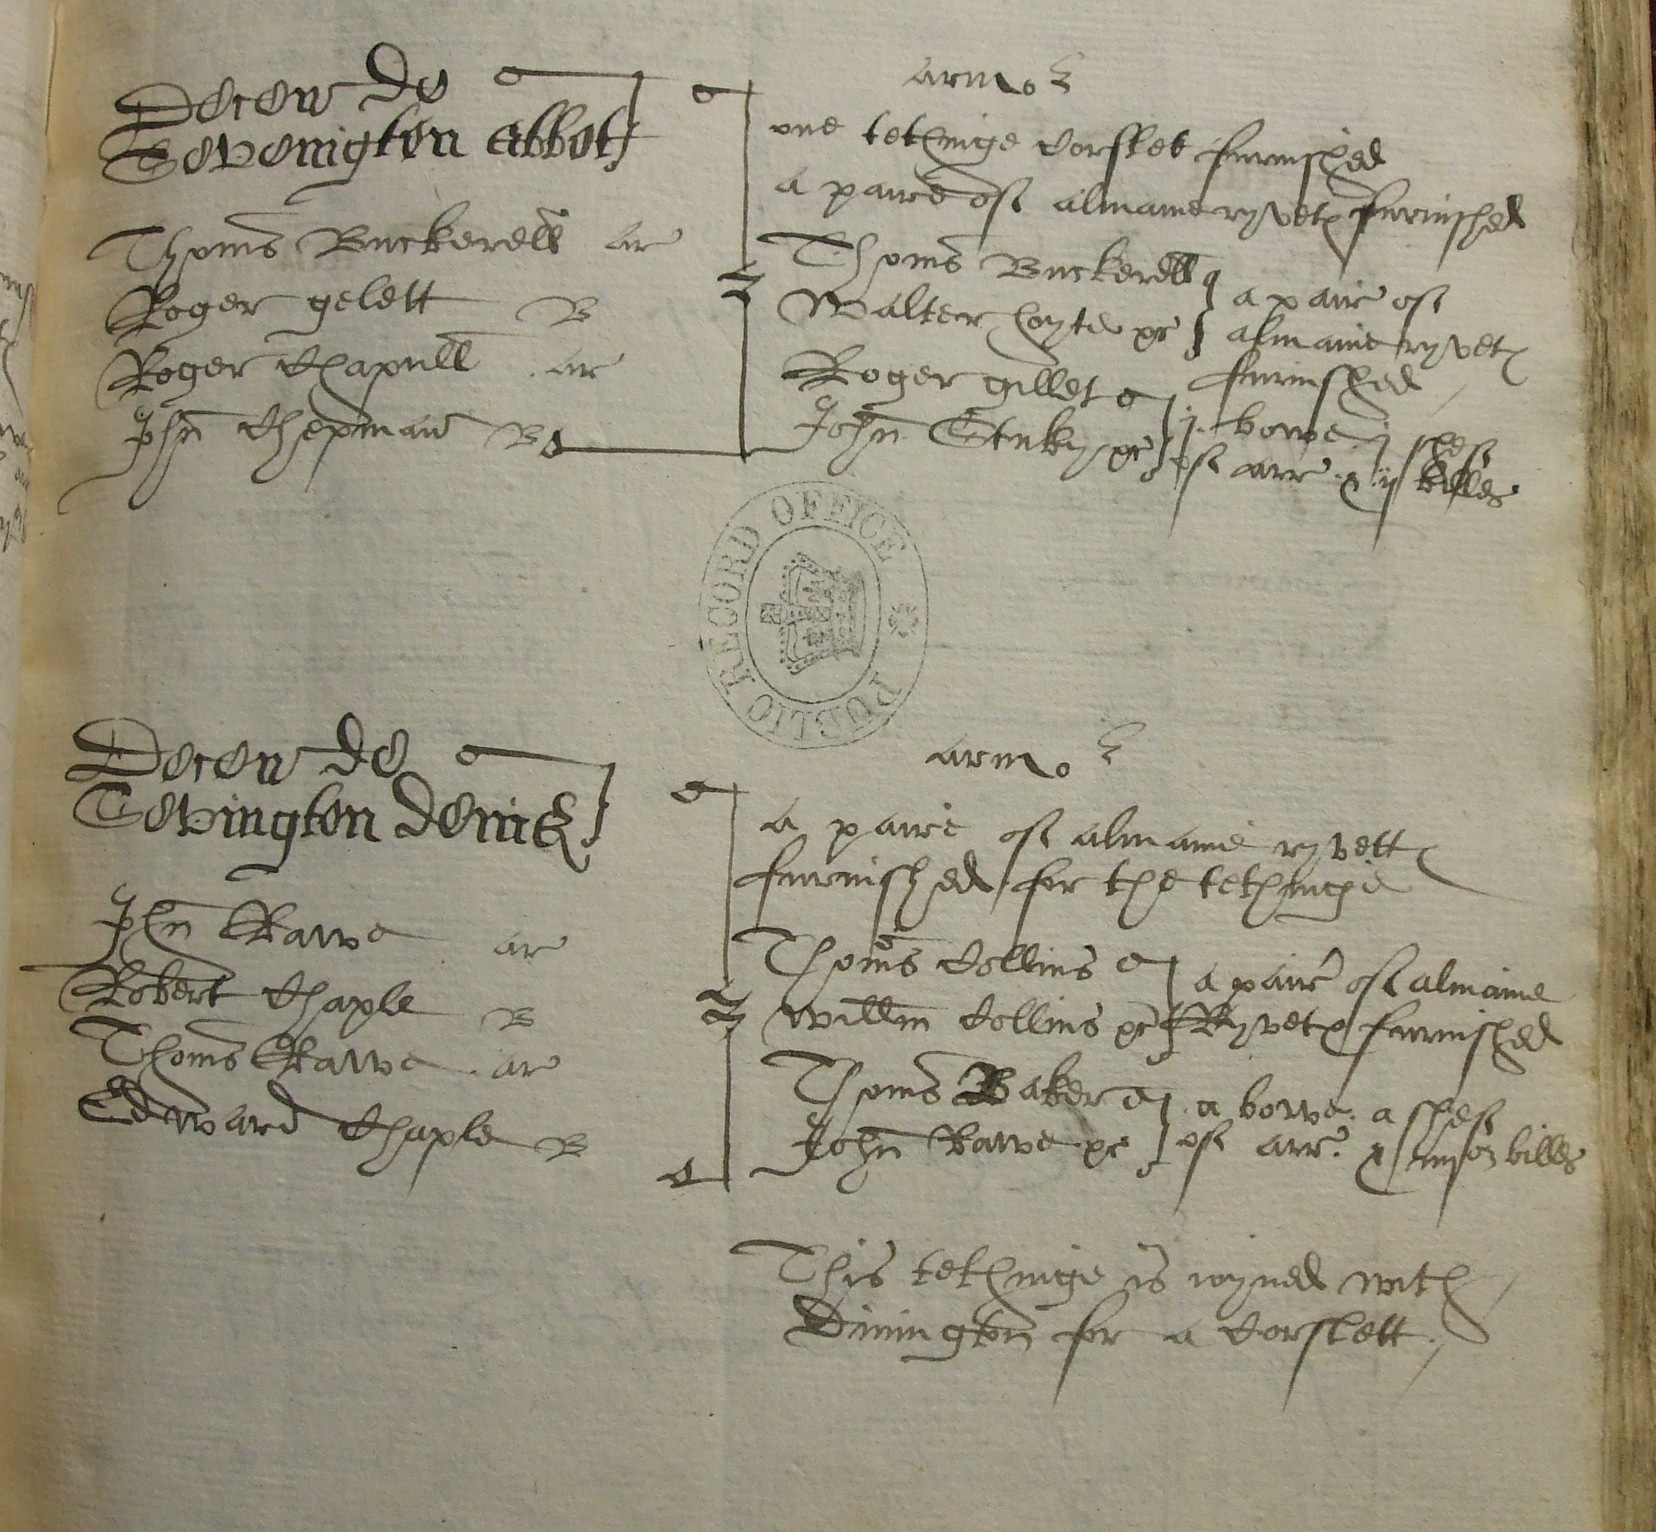 Decen de
Sevenigton abbott
Thoms Buckerell ar
Roger gelett B
Roger Chapull ar
Jhn Chepman B
armo
one tethinge Corslet furnished
a paire off almaine ryvett furnished
Thoms Buckerell
Walter pr
a paire off
almaine ryvett
furnished
Roger gillet
John Stuky pr
j bowe j sheff
off arr & ij billes
PUBLIC RECORD OFFICE
Decen de
Sevington denis
Jhn Rawe ar
Robert Chaple B
Thoms Rawe ar
Edward Chaple B
armo
a paire off almaine ryvett
furnished for the tethinge
Thoms Collins
Willm Collins pr
a pair off almaine
Ryvett furnished
Thoms Baker
John Rawe pr
a bowe a sheff
off arr & billes
This tethinge is ioyned with
Dinington for a Corslett